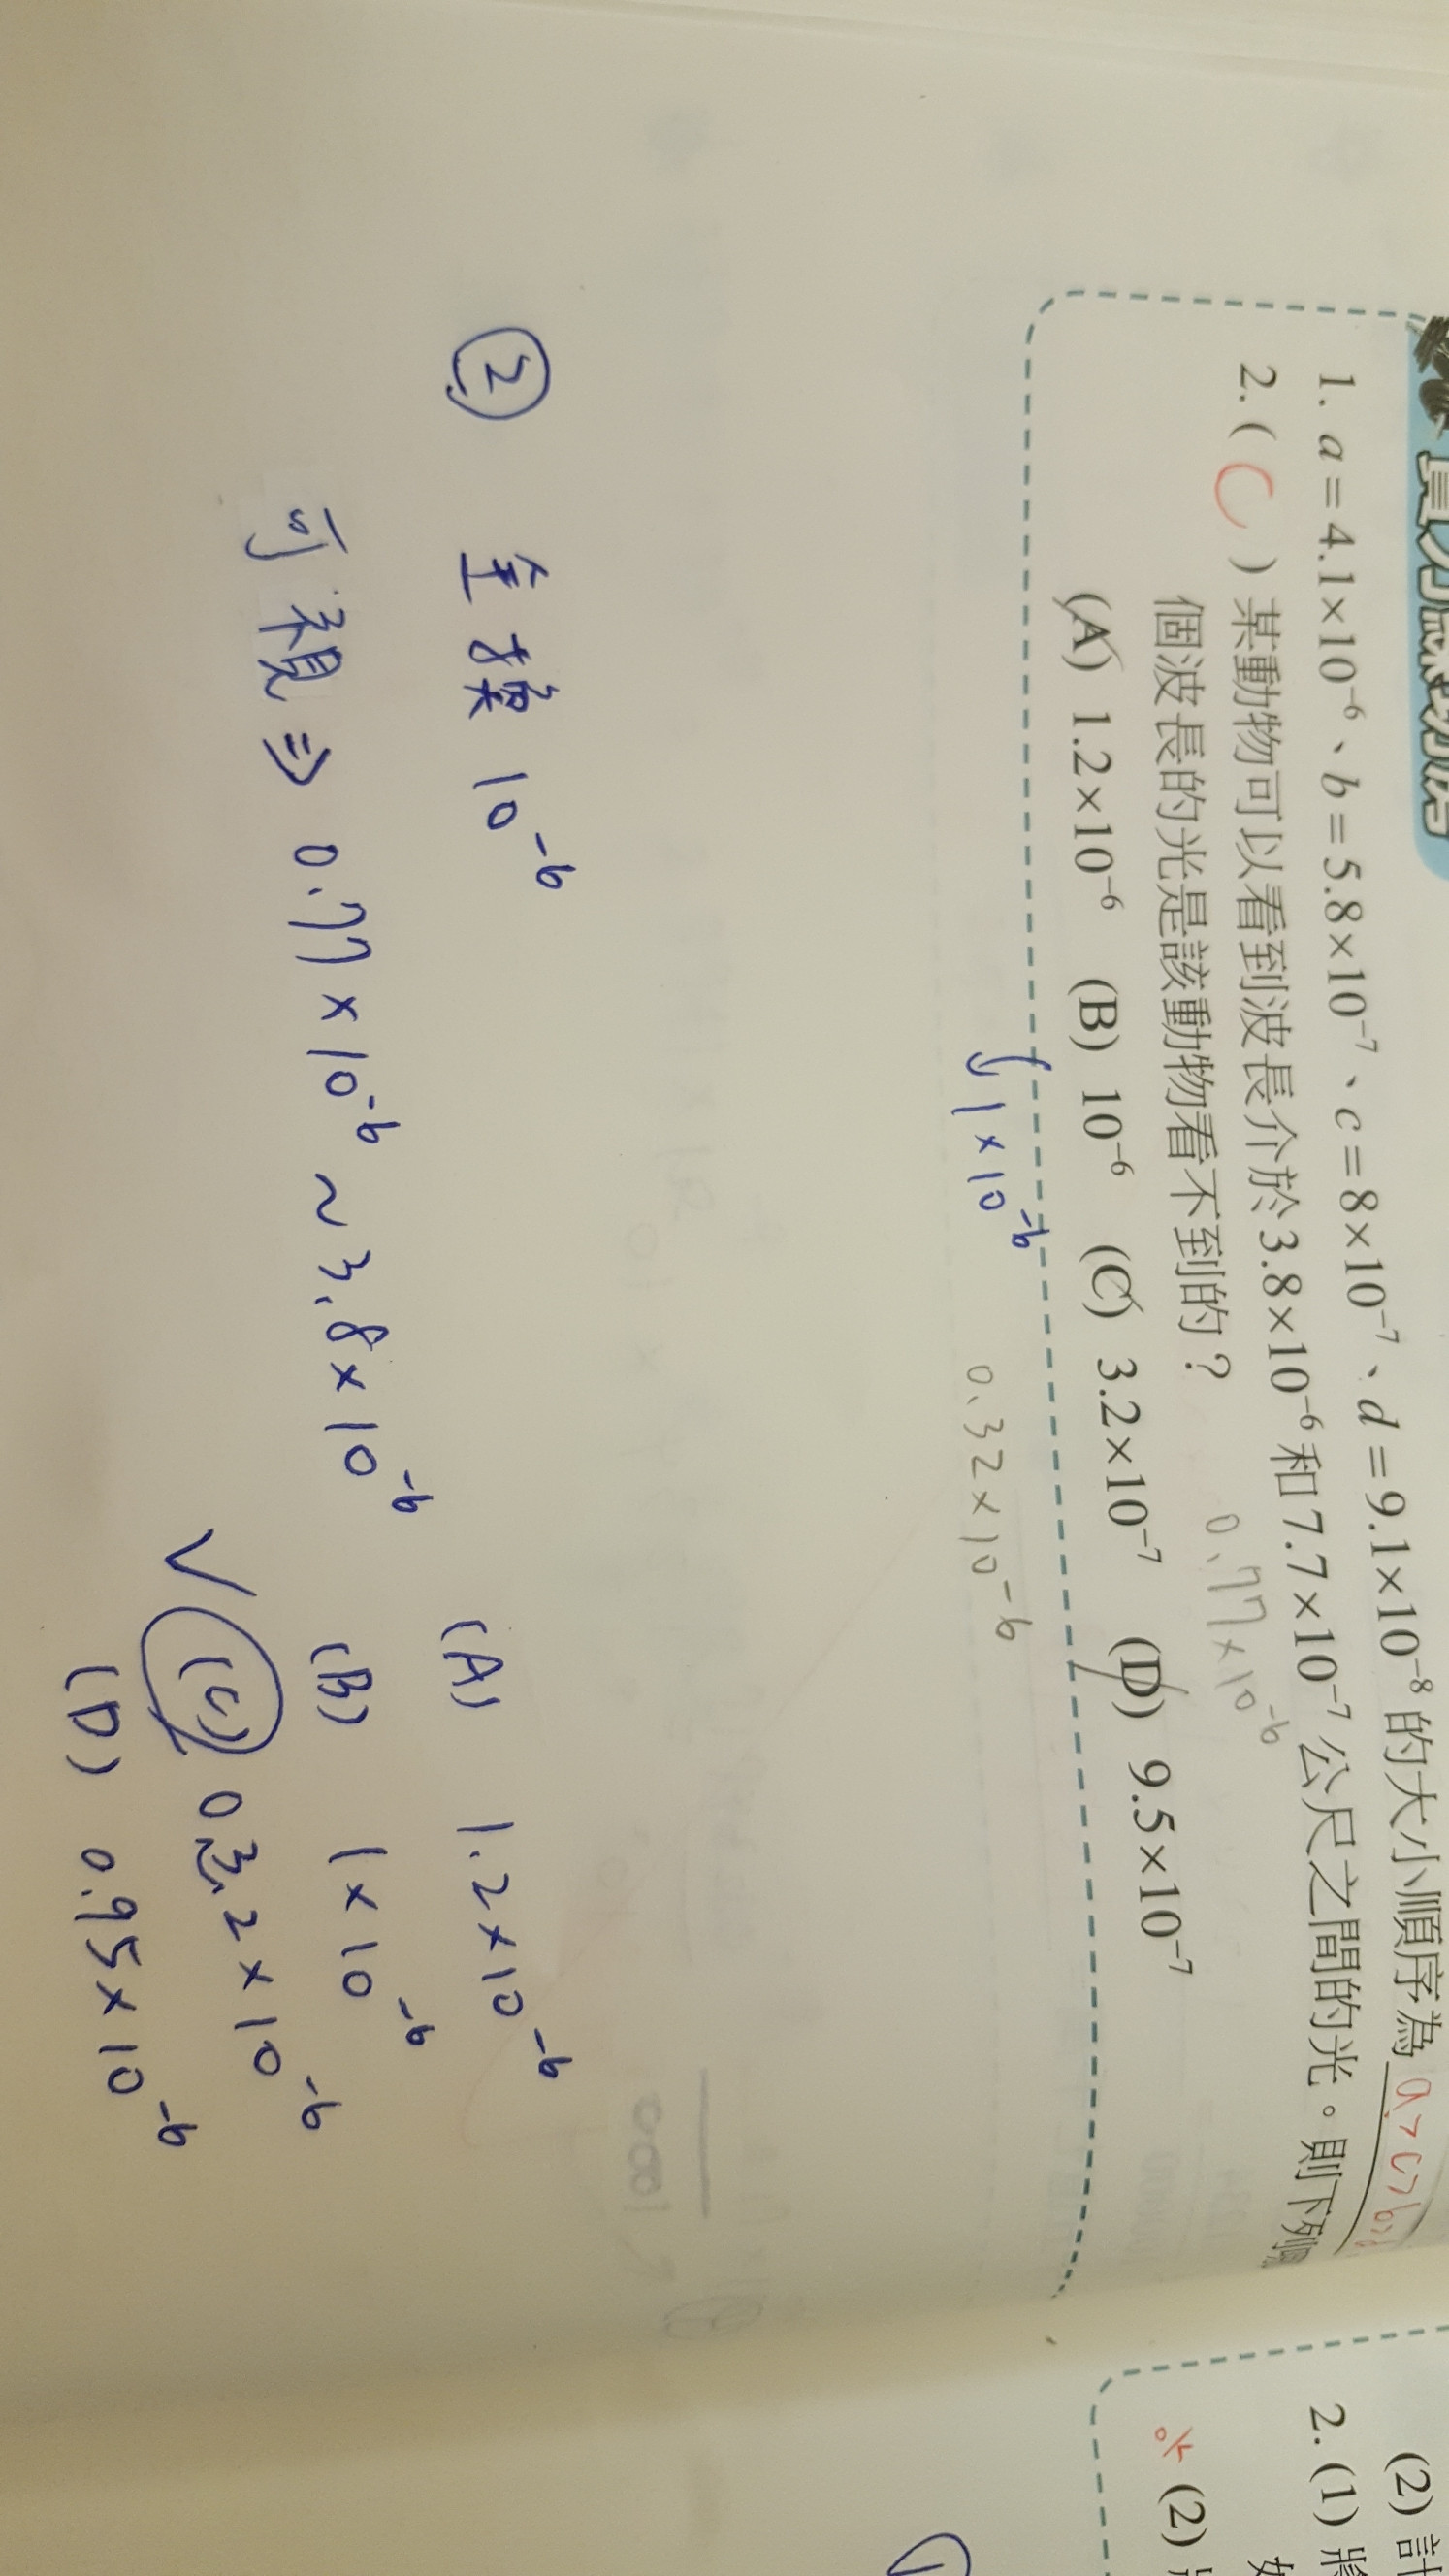 1. a＝4.1×10⁻⁶、b＝5.8×10⁻⁷、c＝8×10⁻⁷、d＝9.1×10⁻⁸ 的大小順序為 a>c>b>d
2. ( C ) 某動物可以看到波長介於 3.8×10⁻⁶ 和 7.7×10⁻⁷ 公尺之間的光。則下列
0.77×10⁻⁶
個波長的光是該動物看不到的？
(A) 1.2×10⁻⁶ (B) 10⁻⁶ (C) 3.2×10⁻⁷ (D) 9.5×10⁻⁷
↳ 1×10⁻⁶
0.32×10⁻⁶
② 全換 10⁻⁶
可視 ⇒ 0.77×10⁻⁶ ~ 3.8×10⁻⁶
(A) 1.2×10⁻⁶
(B) 1×10⁻⁶
✓ (C) 0.32×10⁻⁶
(D) 0.95×10⁻⁶
(2) 計
2. (1) 將
* (2)